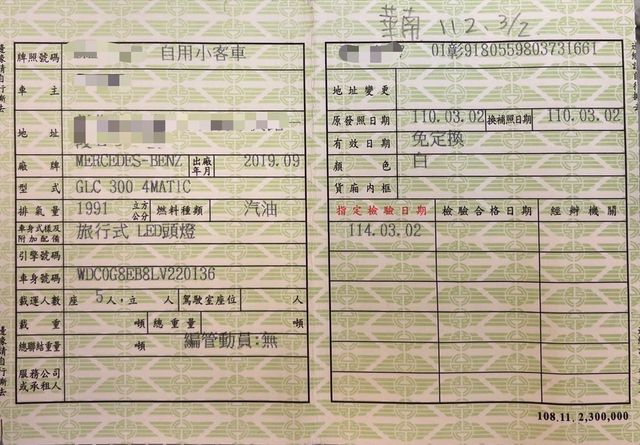 華南 112. 3/2
牌照號碼 自用小客車
車主
地址
廠牌 MERCEDES-BENZ 出廠年月 2019.09
型式 GLC 300 4MATIC
排氣量 1991 立方公分 燃料種類 汽油
車身式樣及附加配備 旅行式 LED頭燈
引擎號碼
車身號碼 WDC0G8EB8LV220136
載運人數 座 5人,立 人 駕駛室座位 人
載重 噸 總重量 噸
總聯結重量 噸 編管動員:無
服務公司或承租人
01彰29180559803731661
地址變更
原發照日期 110.03.02 換補照日期 110.03.02
有效日期 免定換
顏色 白
貨廂內框
指定檢驗日期 檢驗合格日期 經辦機關
114.03.02
108.11. 2,300,000
邊緣請自行撕去